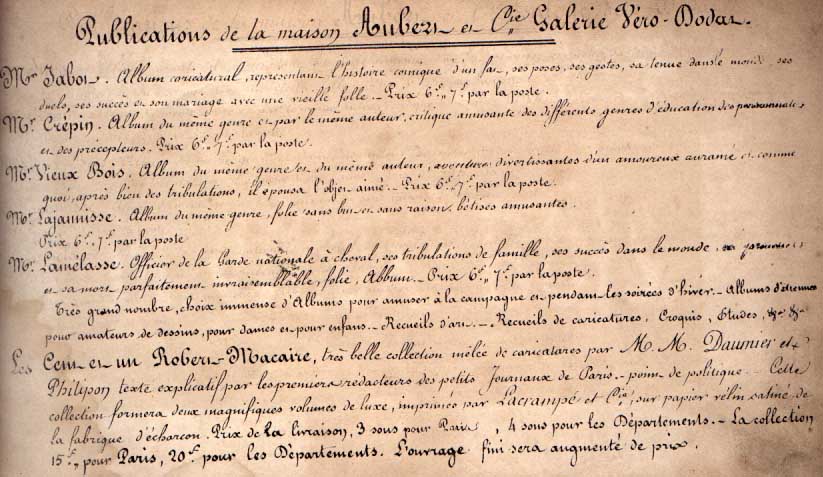 Publications de la maison Aubert et Cie Galerie Véro-Dodat.
Mr Jabot. Album caricatural, représentant l'histoire comique d'un fat, ses poses, ses gestes, sa tenue dans le monde, ses
duels, ses succès et son mariage avec une vieille folle. - Prix 6f., 7f. par la poste.
Mr Crépin. Album du même genre et par le même auteur, critique amusante des différents genres d'éducation des
et des précepteurs. Prix 6f., 7f. par la poste.
Mr Vieux Bois. Album du même genre et du même auteur, aventures divertissantes d'un amoureux suranné et comme
quoi, après bien des tribulations, il épousa l'objet aimé. - Prix 6f., 7f. par la poste.
Mr Lajaunisse. Album du même genre, folie sans but et sans raison, bêtises amusantes.
Prix 6f., 7f. par la poste
Mr Lamélasse. Officier de la Garde nationale à cheval, ses tribulations de famille, ses succès dans le monde, sa
et sa mort parfaitement invraisemblable, folie, Album. - Prix 6f., 7f. par la poste.
Très grand nombre, choix immense d'Albums pour amuser à la campagne et pendant les soirées d'hiver. - Albums d'étrennes
pour amateurs de dessins, pour dames et pour enfans. - Recueils d'art. - Recueils de caricatures, Croquis, Etudes, &c &c
Les Cent et un Robert-Macaire, très belle collection mêlée de caricatures par M. M. Daumier et
Philipon texte explicatif par les premiers rédacteurs des petits Journaux de Paris. - point de politique. - Cette
collection formera deux magnifiques volumes de luxe, imprimés par Lacrampe et Cie, sur papier vélin satiné de
la fabrique d'écharcon. Prix de la livraison, 3 sous pour Paris, 4 sous pour les Départements. - La collection
15f., pour Paris, 20f. pour les Départements. L'ouvrage fini sera augmenté de prix.